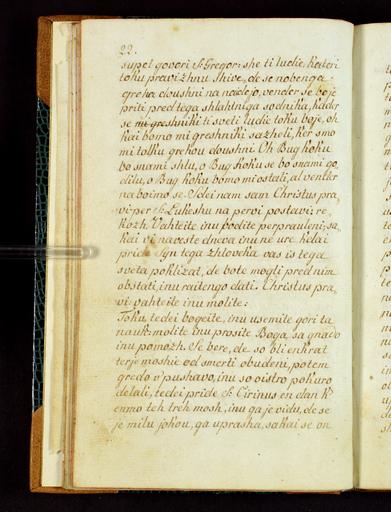 22.
supet govori S. Gregor: she ti ludie, kateri
toku pravizhnu shive, de se nobenga
greha doushni na naidejo, vender se boje
priti pred tega shlahtniga sodnika, kader
se mi greshniki ti sveti ludie toku boje, oh
kai bomo mi greshniki sazheli, ker smo
mi tolku grehou doushni Oh Bug koku
bo snami shlu, o Bug koku se bo snami go
dilu, o Bug koku bomo mi ostali, al venkr
na boimo se. Sdei nam sam Christus pra,
vi per S. Lukeshu na pervi postavi; re,
kozh. Vahteite inu bodite perprauleni, sa,
kai vi naveste dneva inu ne ure kdai
pride Syn tega zhloveka vas is tega
sveta poklizat, de bote mogli pred nim
obstati, inu raitengo dati. Christus pra,
vi: vahteite inu molite:
Toku, tedei bogeite, inu usemite gori ta
nauk: molite inu prosite Boga sa gnado
inu pomozh. Se bere, de so bli enkrat
terje moshie od smerti obudeni, potem
gredo v'pushavo, inu so oistro pokuro
delali, tedei pride S. Cirinus en dan k'
enmo teh treh mosh, inu ga je vidu, de se
je milu jokou, ga uprasha, sakai se on